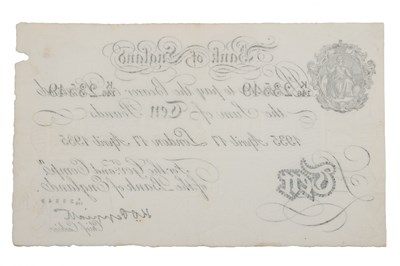 Bank of England
K/146 23549 K/146 23549
to pay the Bearer
the Sum of Ten Pounds
1935 April 17 London 17 April 1935
For the Govr. and Compa.
of the Bank of England.
Ten
Chief Cashier